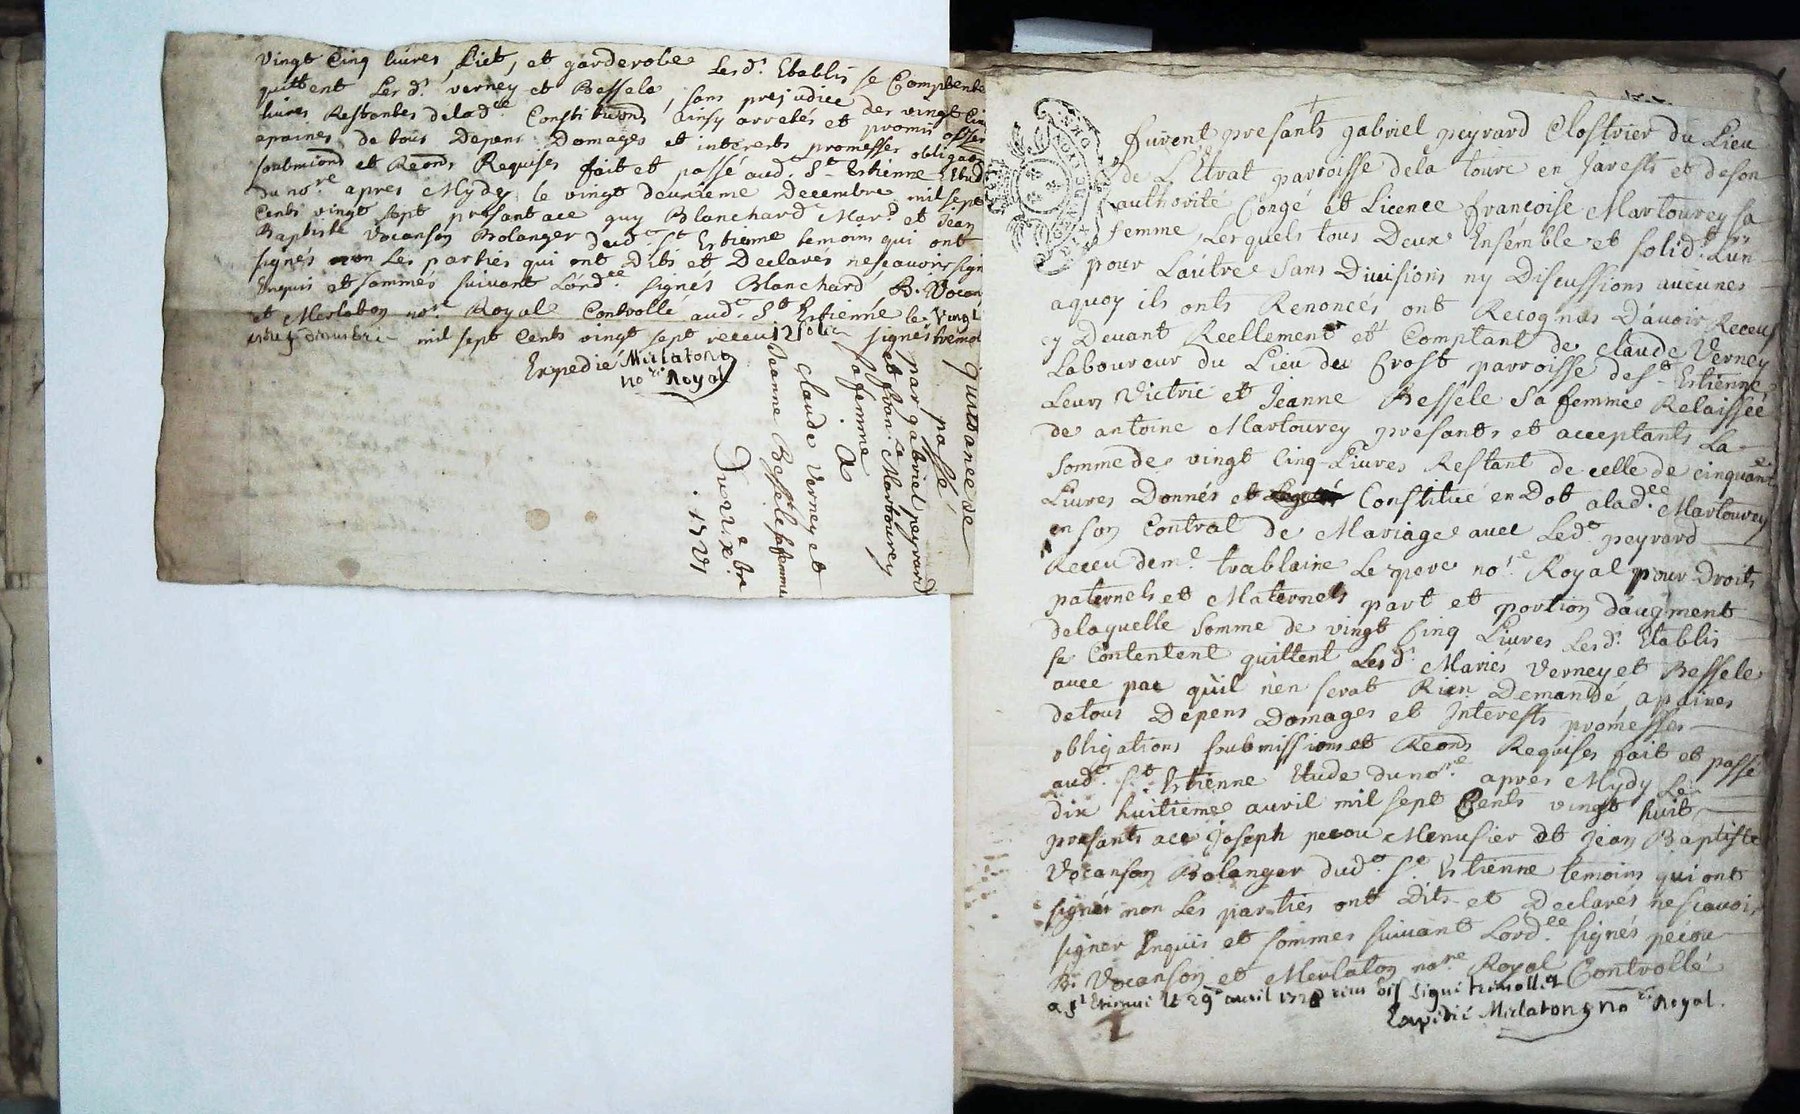 vingt Cinq livres, Liet, et garderobe Lesd. Etablis se Contentent
quittent Lesd. verney et Bessele, sans prejudice des vingt Cinq
livres Restantes delad.ee Constituons, Ainsy arretés et promis
apaines de tous Depens Domages et interests promesses obligaons
soubmions et Reons Requises fait et passé aud. St Estienne Etude
du nore apres Mydy le vingt deuxieme Decembre mil sept
Cents vingt sept presant ace guy Blanchard Mard et Jean
Baptiste Vocanson Bolanger dud. St Estienne temoins qui ont
signés non Les parties qui ont Dits et Declares nescavoir sign
Enquis et sommés suivant Lord.ce signés Blanchard B. Vocan
et Merlaton nore Royal Controllé aud. St Estienne le vingt
decembre mil sept Cents vingt sept receu signés
Expedié Mirlaton
nore Royal
quittance
passé
par gabriel peyrard
et fran.se Martourey
sa femme
A
claude Verney et
Jeanne Bessele sa femme
Du 22e xbre
1727
furent presants gabriel peyrard Clostrier du Lieu
de L'Etrat parroisse dela tour en Jarests et deson
authorité Congé et Licence francoise Martourey sa
femme, Lesquels tous Deux Ensemble et solid.t L'un
pour L'autre Sans Divisions ny Discussions aucunes
aquoy ils onts Renoncés, ont Recognus D'avoir Receus
cy Devant Reellement et Comptant de claude Verney
Laboureur du Lieu du Crost parroisse de St Estienne
Leurs Victric et Jeanne Bessele Sa femme Relaissée
de antoine Martourey presants et acceptants La
Somme de vingt Cinq Livres Restant de celle de cinquante
Livres Donnés et Constitué en Dot alad.ee Martourey
en son Contrat de Mariage avec Led. peyrard
Receu deme trablaine Le pere nore Royal pour Droits
paternels et Maternels part et portion d'augment
delaquelle Somme de vingt Cinq Livres Lesd. Etablis
se Contentent quittent Lesd. Mariés Verney et Bessele
avec pac qu'il n'en serat Rien Demandé, apaines
detous Depens Domages et Interests promesses
obligations soubmissions et Reons Requises fait et passé
aud. St Estienne Etude du nore apres Mydy Le
dix huitieme avril mil sept Cents vingt huit,
presants ace Joseph pecou Menusier et Jean Baptiste
Vocanson Bolanger dud. St Estienne temoins qui ont
signés non Les parties ont Dits et Declarés nescavoir
signer Enquis et sommes suivant Lord.ce signés pecou
B. Vocanson et Merlaton nore Royal Controllé
a St Etienne le 29e avril 1728
Expedié Mirlaton nore Royal.